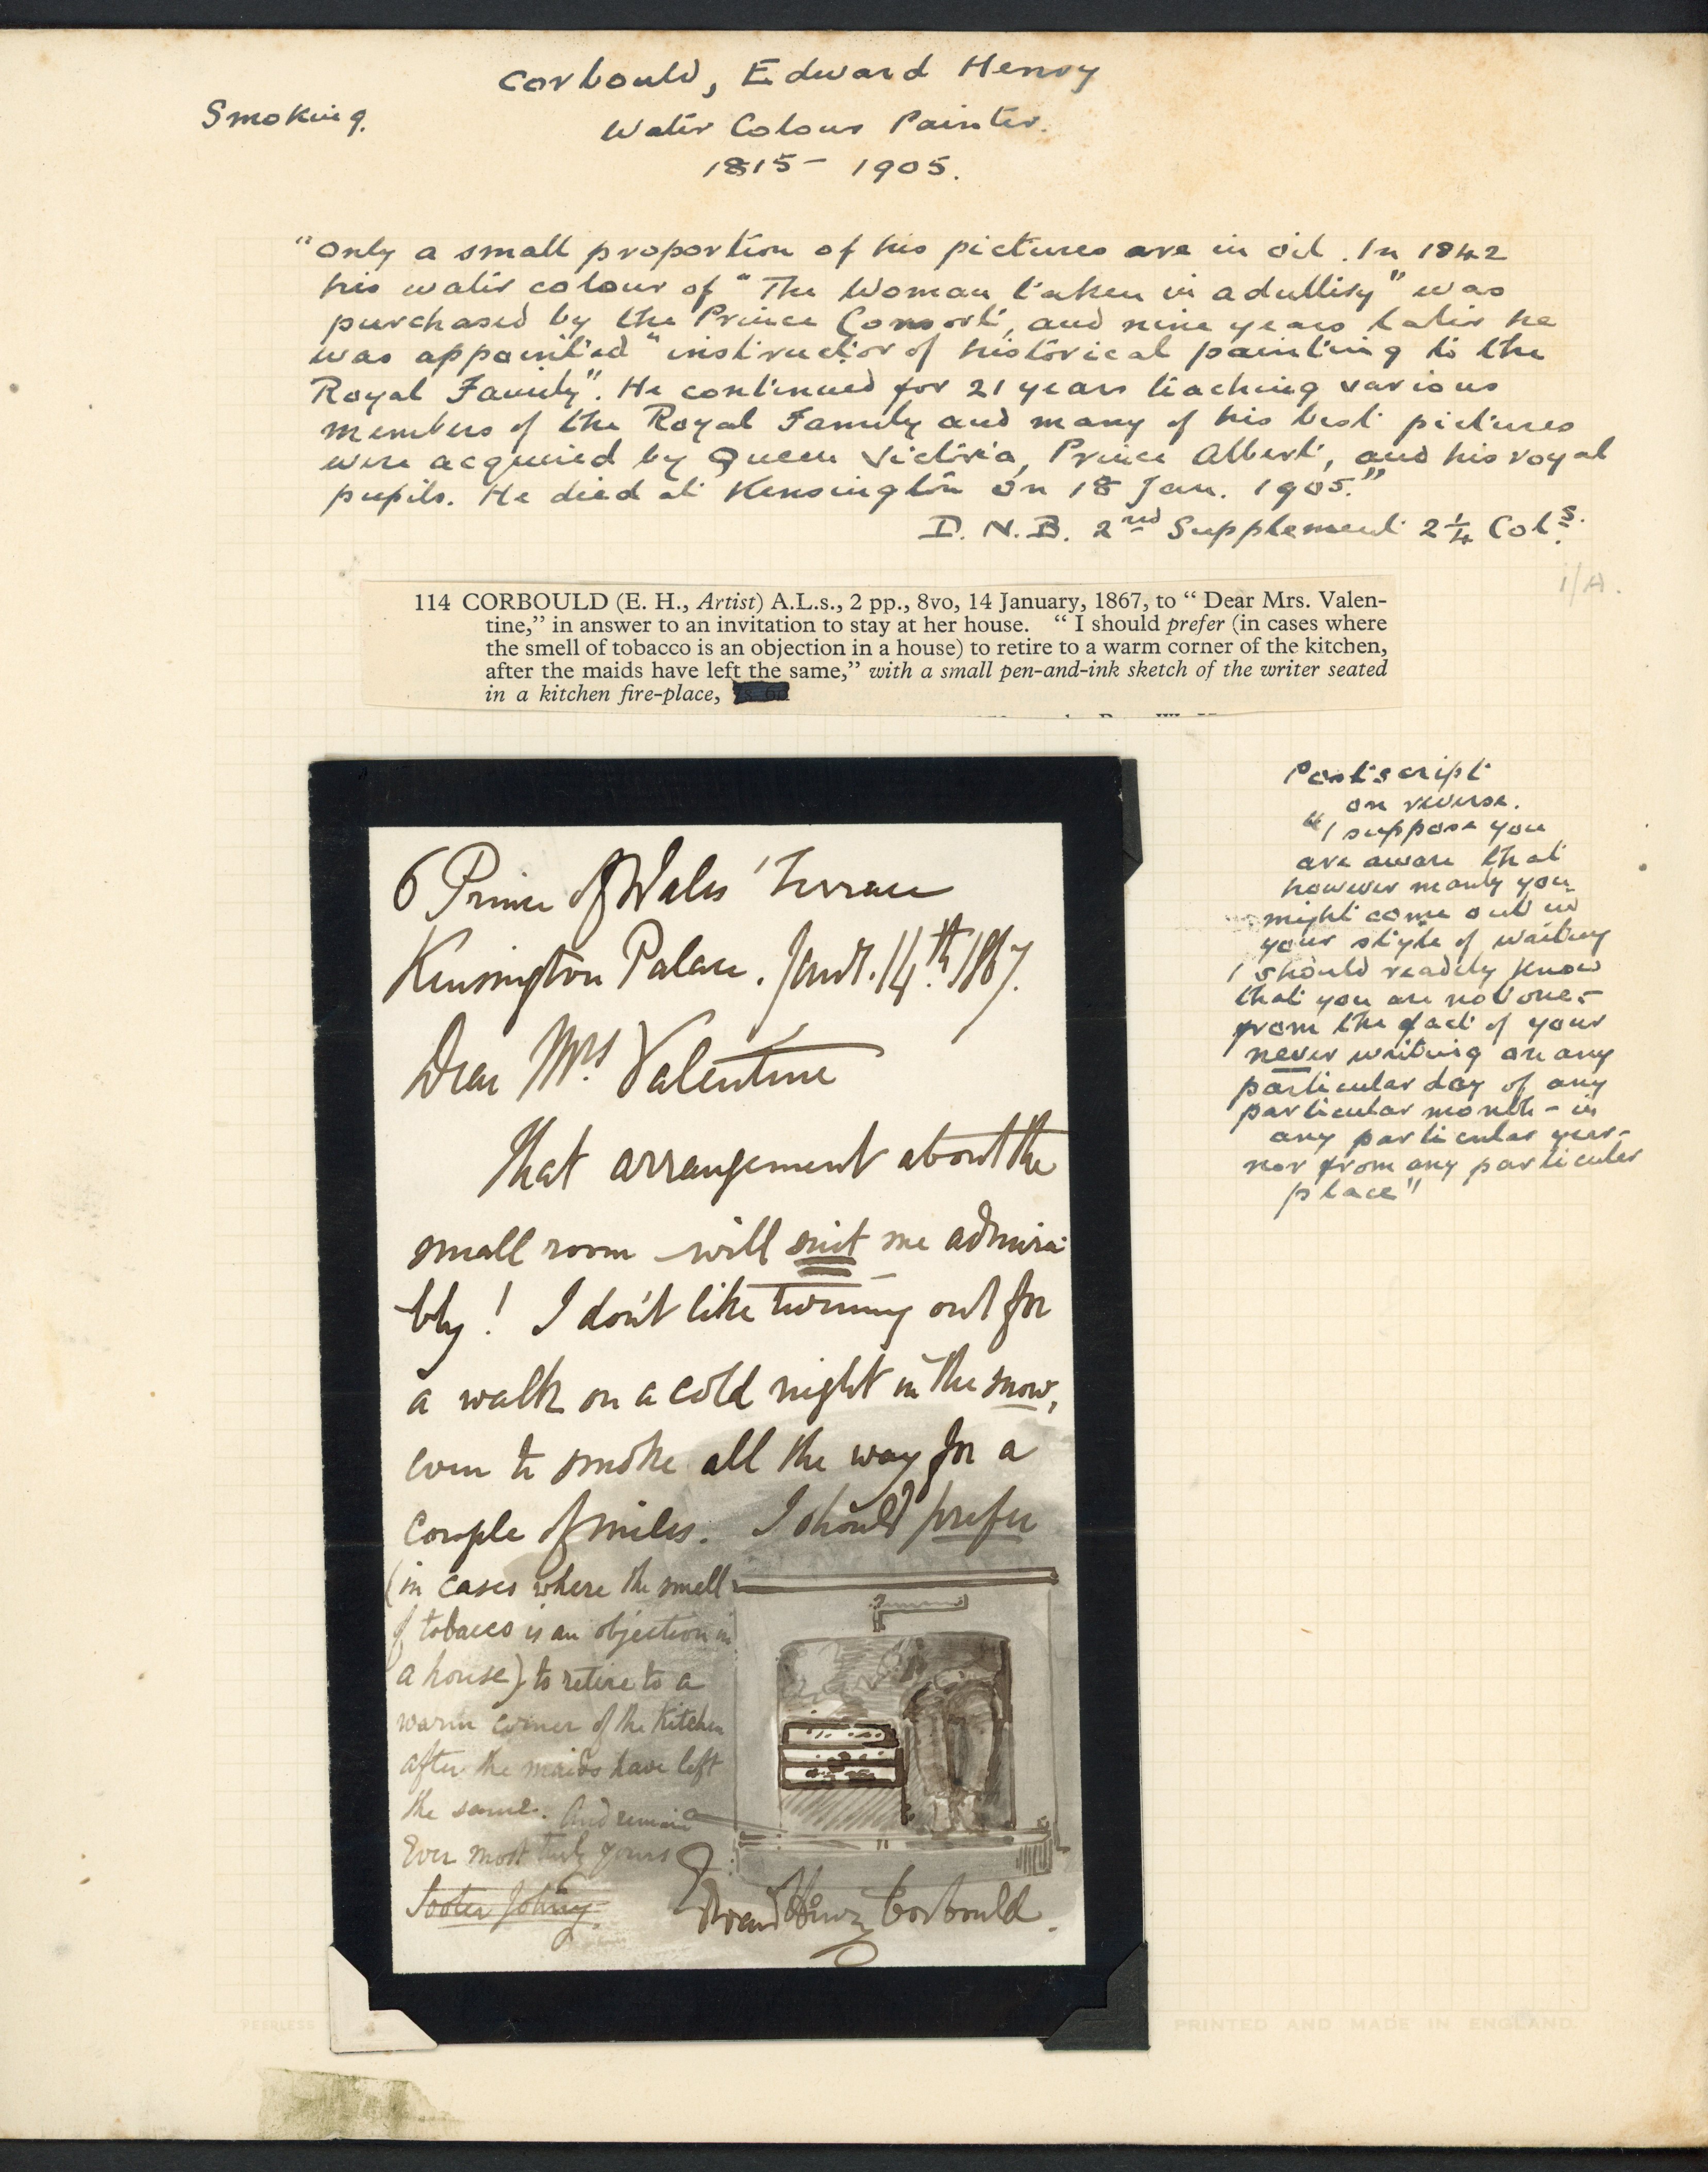 Corbould, Edward Henry
Smoking.
Water Colour Painter.
1815 - 1905.
"Only a small proportion of his pictures are in oil. In 1842
his water colour of "The Woman taken in adultery" was
purchased by the Prince Consort, and nine years later he
was appointed "instructor of historical painting to the
Royal Family". He continued for 21 years teaching various
members of the Royal Family and many of his best pictures
were acquired by Queen Victoria, Prince Albert, and his royal
pupils. He died at Kensington on 18 Jan. 1905."
D. N. B. 2nd Supplement 2¼ Cols.
1/A.
114 CORBOULD (E. H., Artist) A.L.s., 2 pp., 8vo, 14 January, 1867, to " Dear Mrs. Valen-
tine," in answer to an invitation to stay at her house. " I should prefer (in cases where
the smell of tobacco is an objection in a house) to retire to a warm corner of the kitchen,
after the maids have left the same," with a small pen-and-ink sketch of the writer seated
in a kitchen fire-place,
6 Prince of Wales' Terrace
Kensington Palace. Janr. 14th 1867.
Dear Mrs Valentine
That arrangement about the
small room will suit me admira-
bly! I don't like turning out for
a walk on a cold night in the snow,
even to smoke all the way for a
couple of miles. I should prefer
(in cases where the smell
of tobacco is an objection in
a house) to retire to a
warm corner of the kitchen
after the maids have left
the same. And remain
Ever most truly yours
Sooter Johnny.
Edward Henry Corbould.
Postscript
on reverse.
"I suppose you
are aware that
however manly you
might come out in
your style of writing
I should readily know
that you are not one -
from the fact of your
never writing on any
particular day of any
particular month - in
any particular year -
nor from any particular
place"
PEERLESS
PRINTED AND MADE IN ENGLAND.